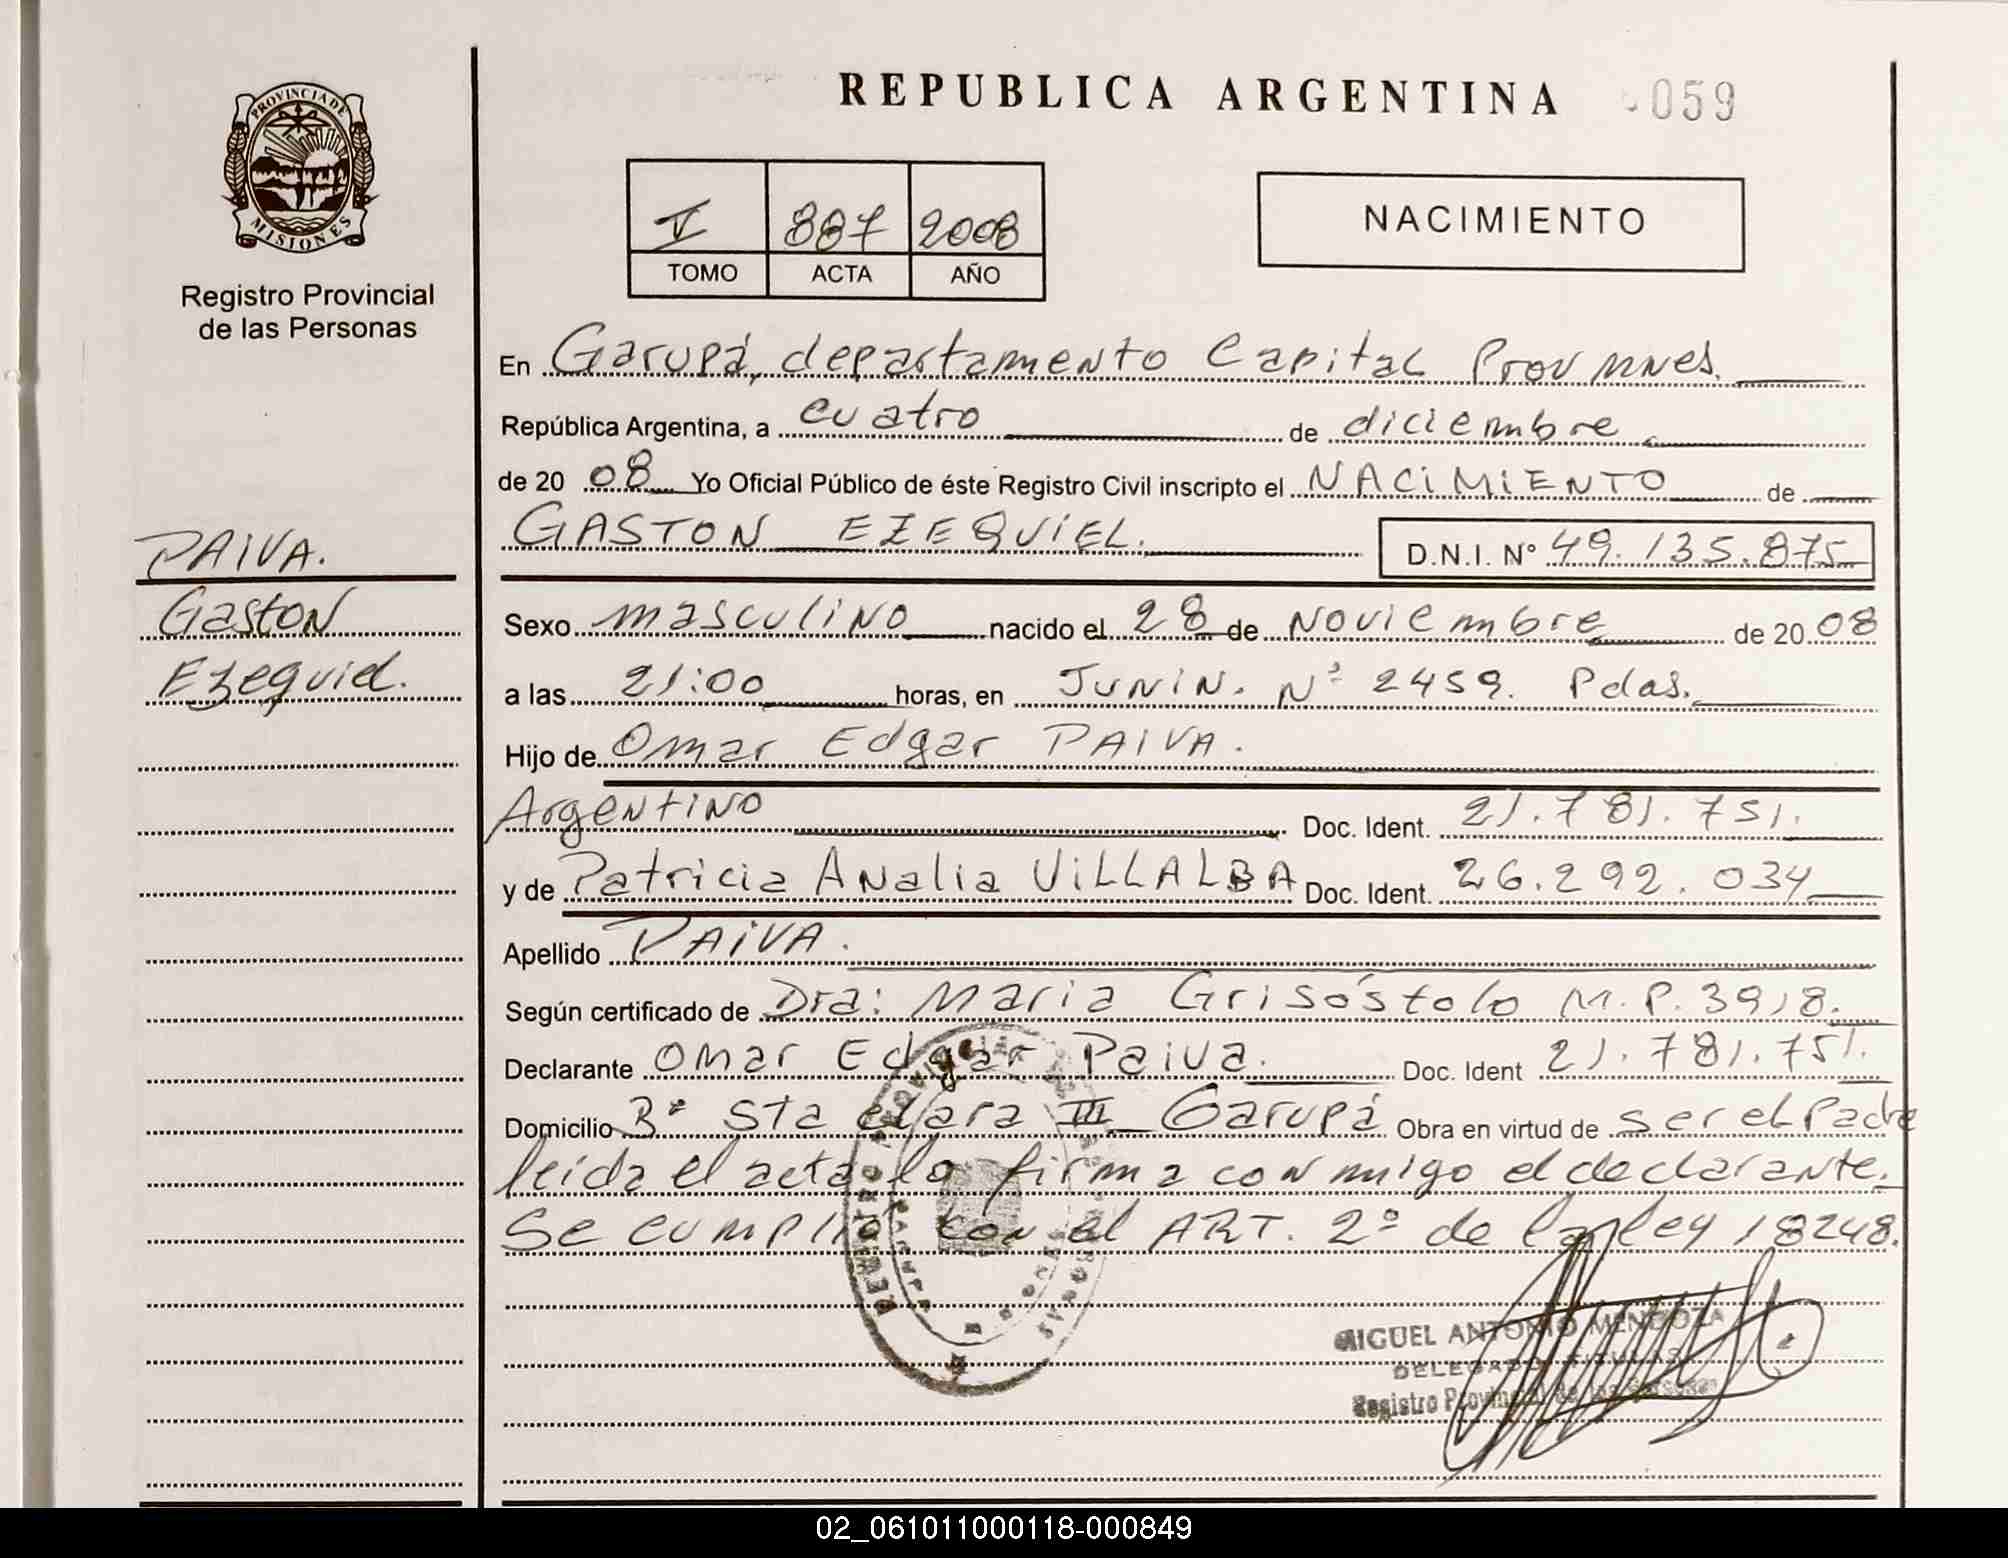 REPUBLICA ARGENTINA 059
PROVINCIA DE
MISIONES
Registro Provincial
de las Personas
V 887 2008
TOMO ACTA AÑO
NACIMIENTO
En Garupá, departamento Capital Prov Mnes.
República Argentina, a cuatro de diciembre
de 20 08 Yo Oficial Público de éste Registro Civil inscripto el NACIMIENTO de
GASTON EZEQUIEL. D.N.I. Nº 49.135.875
PAIVA.
Gaston
Ezequiel.
Sexo masculino nacido el 28 de Noviembre de 20 08
a las 21:00 horas, en JUNIN. Nº 2459. Pdas.
Hijo de Omar Edgar PAIVA.
Argentino Doc. Ident. 21.781.751.
y de Patricia Analia VILLALBA Doc. Ident. 26.292.034
Apellido PAIVA.
Según certificado de Dra: Maria Grisóstolo M.P. 3918.
Declarante Omar Edgar Paiva. Doc. Ident 21.781.751.
Domicilio Bº Sta clara III Garupá Obra en virtud de ser el Padre
leida el acta la firma conmigo el declarante.
Se cumplió con el ART. 2º de la ley 18248.
MIGUEL ANTONIO MENDOZA
DELEGADO TITULAR
Registro Provincial de las Personas
02_061011000118-000849